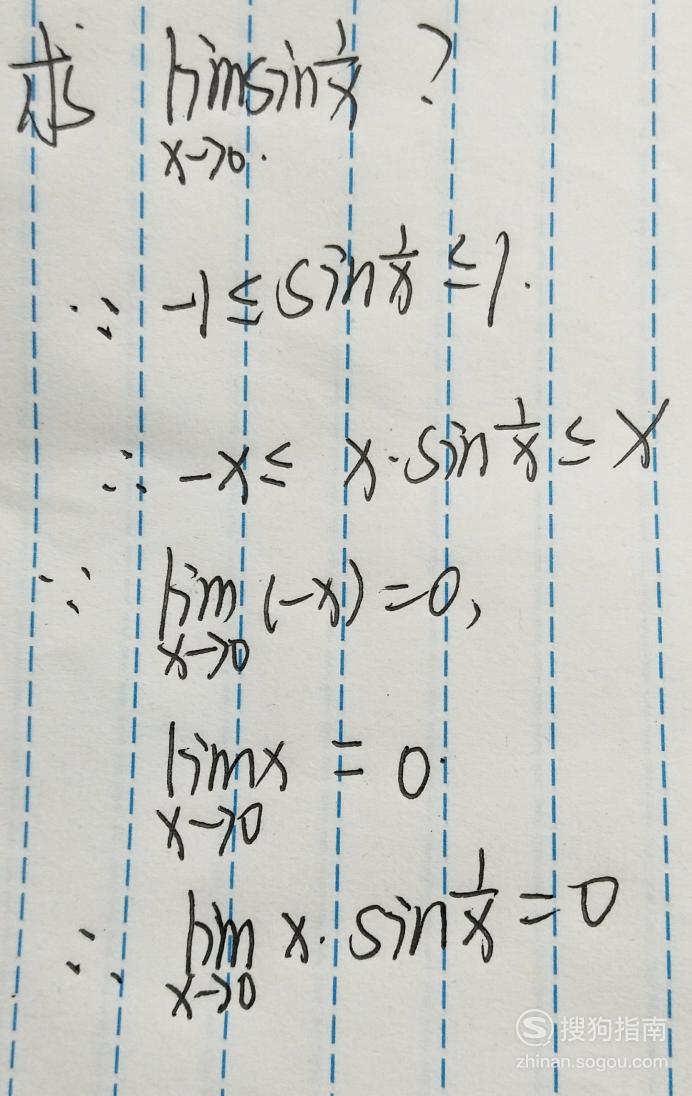 求 lim sin 1/x ?
x→0.
∵ -1 ≤ sin 1/x ≤ 1.
∴ -x ≤ x·sin 1/x ≤ x
∵ lim (-x) = 0,
x→0
lim x = 0.
x→0
∴ lim x·sin 1/x = 0
x→0
S 搜狗指南
zhinan.sogou.com